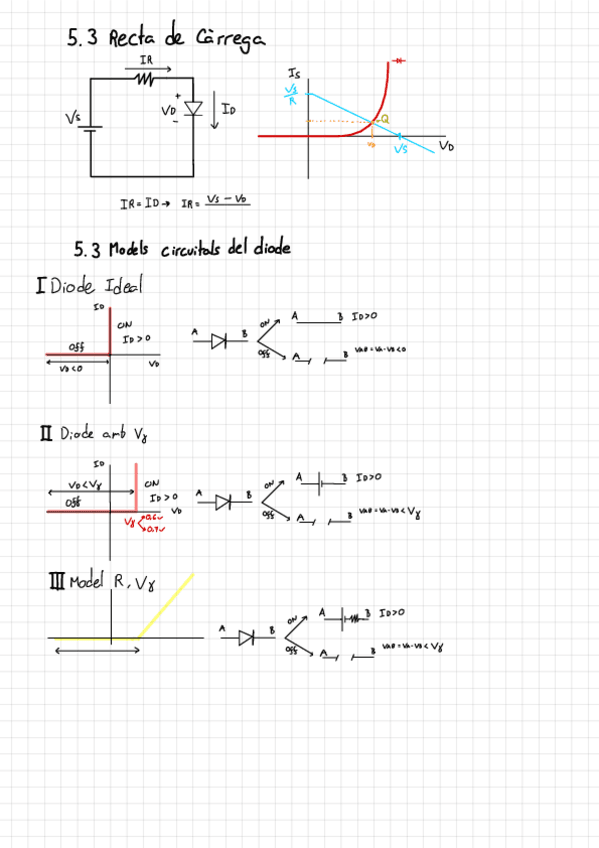 5.3 Recta de Càrrega
IR
Is
Vs/R
Vs
VD
+
-
ID
Q
Vs
VD
IR = ID → IR = Vs - VD
5.3 Models circuitals del diode
I Diode Ideal
ID
ON
ID>0
Off
VD<0
VD
A
B
ON
Off
A B ID>0
A B VAB=VA-VB<0
II Diode amb Vγ
ID
VD<Vγ
ON
ID>0
Off
VD
Vγ
0.6v
0.7v
A
B
ON
Off
A B ID>0
A B VAB=VA-VB<Vγ
III Model R, Vγ
A
B
ON
Off
A B ID>0
A B VAB=VA-VB<Vγ